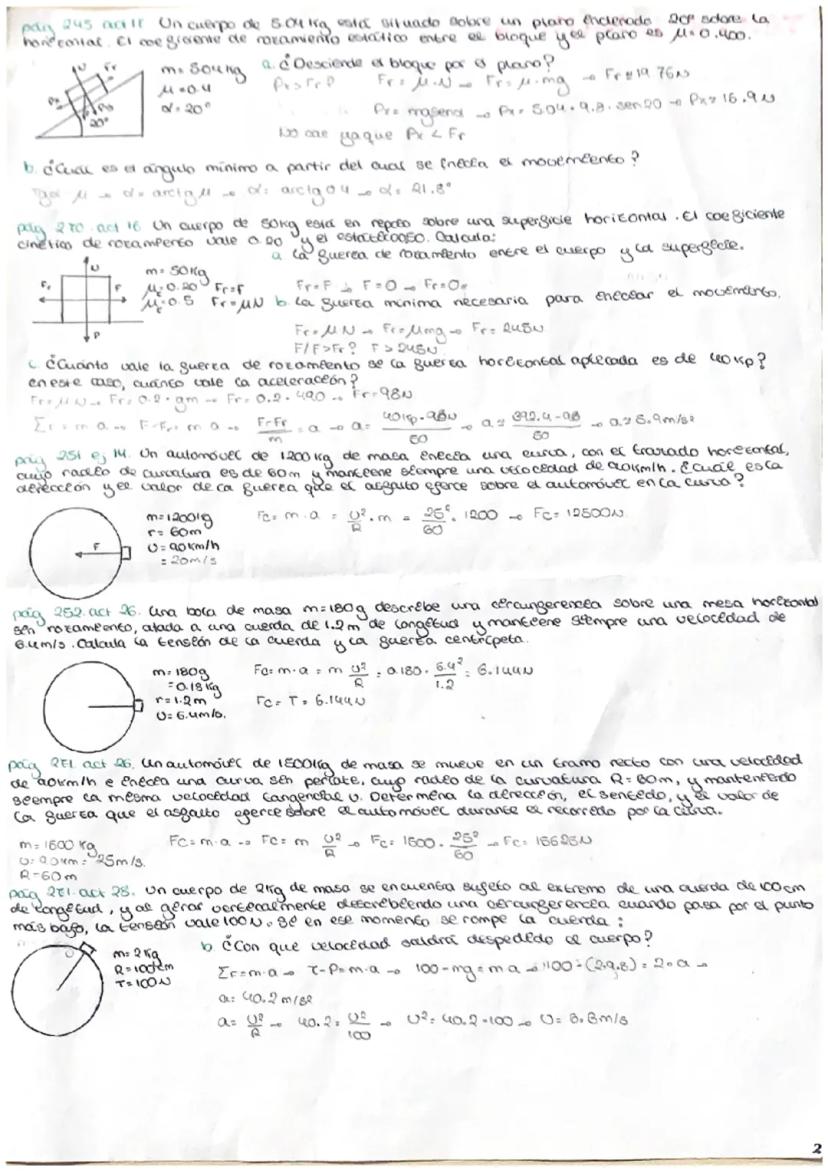 pág 245 act 11 Un cuerpo de 5.04 kg está situado sobre un plano inclinado 20º sobre la
horizontal. El coeficiente de rozamiento estático entre el bloque y el plano es μ=0.400.
m=5.04kg
μ=0.4
α=20º
a. ¿Desciende el bloque por el plano?
Px>Fr?
Fr=μ·N → Fr=μ·mg → Fr≈19.75N
Px=mgsenα → Px=5.04·9.8·sen20 → Px≈16.9N
No cae ya que Px<Fr
N
Fr
20º
b. ¿Cual es el ángulo mínimo a partir del cual se inicia el movimiento?
Tgα=μ → α=arctgμ → α=arctg0.4 → α=21.8º
pág 270 act 16 Un cuerpo de 50kg está en reposo sobre una superficie horizontal. El coeficiente
cinético de rozamiento vale 0.20 y el estático 0.50. Calcula:
a. la fuerza de rozamiento entre el cuerpo y la superficie.
N
Fr
F
P
m=50kg
μc=0.20 Fr=F
μe=0.5 Fr=μN
Fr=F → F=0 → Fr=0
b. La fuerza mínima necesaria para iniciar el movimiento.
Fr=μN → Fr=μmg → Fr=245N
F/F>Fr? F>245N
c. ¿Cuánto vale la fuerza de rozamiento si la fuerza horizontal aplicada es de 40kp?
en este caso, cuánto vale la aceleración?
Fr=μN → Fr=0.2·gm → Fr=0.2·490 → Fr=98N
ΣF=m·a → F-Fr=m·a → F-Fr/m=a → a=40kp-98N/50 → a=392.4-98/50 → a≈5.9m/s²
pág 251 ej 14. Un automóvil de 1200kg de masa inicia una curva, con el trazado horizontal,
cuyo radio de curvatura es de 60m y mantiene siempre una velocidad de 90km/h. ¿Cuál es la
dirección y el valor de la fuerza que el asfalto ejerce sobre el automóvil en la curva?
F
m=1200kg
r=60m
v=90km/h
=20m/s
Fc=m·a=v²/R·m=25²/60·1200 → Fc=12500N
pág 252 act 26. Una bola de masa m=180g describe una circunferencia sobre una mesa horizontal
sin rozamiento, atada a una cuerda de 1.2m de longitud y mantiene siempre una velocidad de
6.4m/s. Calcula la tensión de la cuerda y la fuerza centrípeta.
m=180g
=0.18kg
r=1.2m
v=6.4m/s.
Fc=m·a=m v²/R=0.180·6.4²/1.2=6.144N
Fc=T=6.144N
pág 271 act 26. Un automóvil de 1500kg de masa se mueve en un tramo recto con una velocidad
de 90km/h e inicia una curva sin peralte, cuyo radio de la curvatura R=60m, y manteniendo
siempre la misma velocidad tangencial v. Determina la dirección, el sentido, y el valor de
la fuerza que el asfalto ejerce sobre el automóvil durante el recorrido por la curva.
m=1500kg
v=90km=25m/s.
R=60m
Fc=m·a → Fc=m v²/R → Fc=1500·25²/60 → Fc=15625N
pág 271 act 28. Un cuerpo de 2kg de masa se encuentra sujeto al extremo de una cuerda de 100cm
de longitud, y al girar verticalmente describiendo una circunferencia cuando pasa por el punto
más bajo, la tensión vale 100N. Si en ese momento se rompe la cuerda:
m=2kg
R=100cm
T=100N
b ¿Con que velocidad saldrá despedido el cuerpo?
ΣF=m·a → T-P=m·a → 100-mg=ma → 100-(2·9.8)=2·a →
a=40.2m/s²
a=v²/R → 40.2=v²/100 → v²=40.2·100 → v=6.3m/s
2